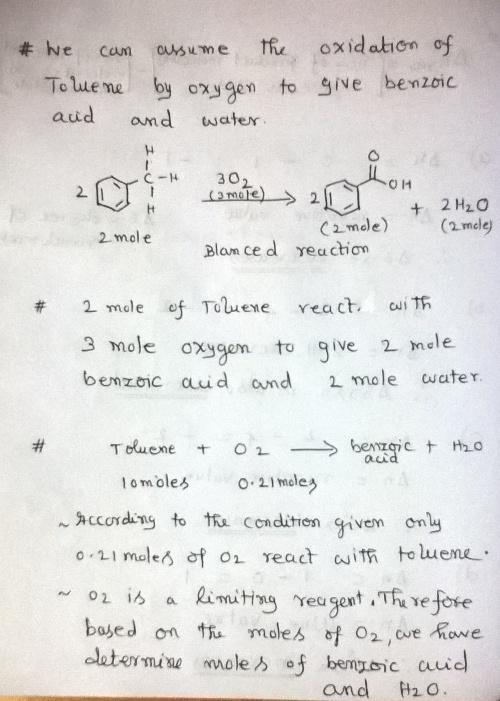 # We can assume the oxidation of
Toluene by oxygen to give benzoic
acid and water.
H
2 C-H 3O2 O OH
H (3mole) ⟶ 2 + 2H2O
2 mole (2mole) (2mole)
Blanced reaction
# 2 mole of Toluene react. with
3 mole oxygen to give 2 mole
benzoic acid and 2 mole water.
# Toluene + O2 ⟶ benzoic acid + H2O
10moles 0.21moles
~ According to the condition given only
0.21 moles of O2 react with toluene.
~ O2 is a limiting reagent. Therefore
based on the moles of O2, we have
determine moles of benzoic acid
and H2O.